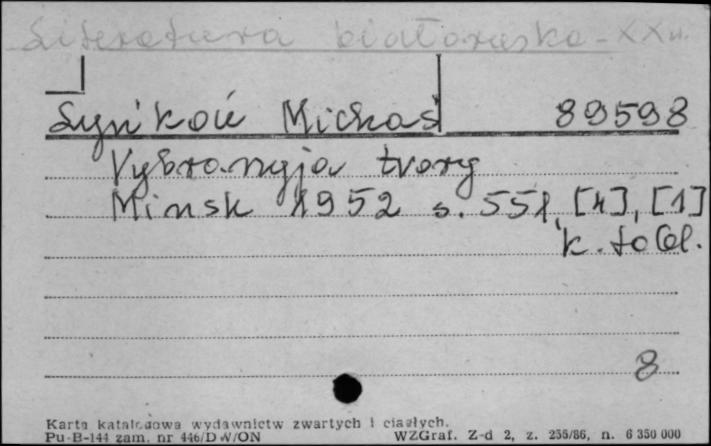 Literatura białoruska - XX w.
Łyńkoŭ Michaś 89598
Vybranyja tvory
Minsk 1952 s. 551, [4], [1]
k. tabl.
8
Karta katalogowa wydawnictw zwartych i ciągłych.
Pu-B-144 zam. nr 446/DW/ON WZGraf. Z-d 2, z. 255/86, n. 6 350 000